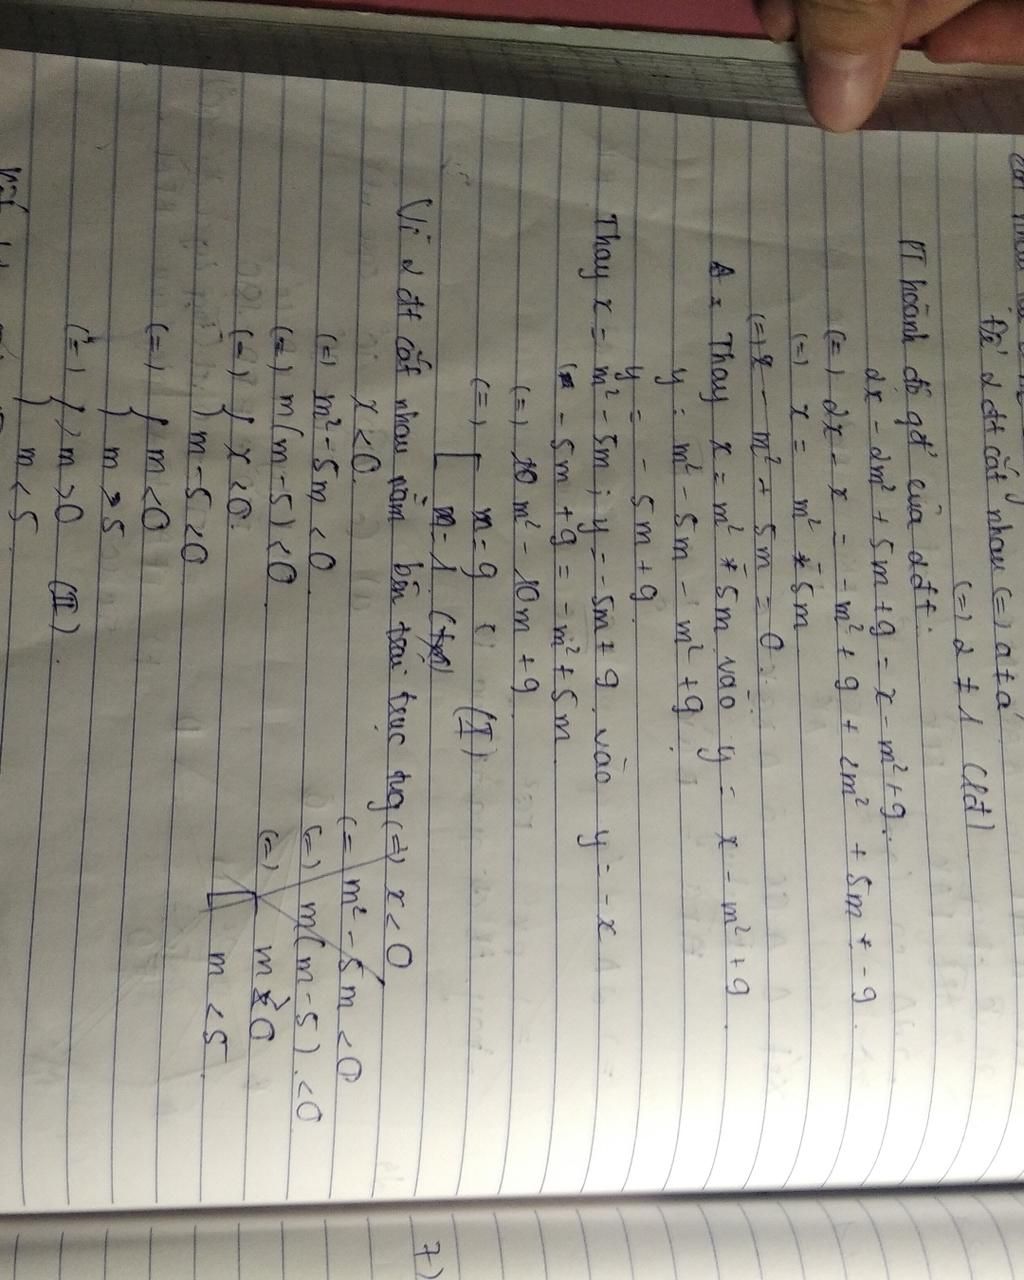 Để 2 đt cắt nhau (=) a ≠ a'
(=) 2 ≠ 1 (lđ)
PT hoành độ gđ của 2đt.
2x - 2m² + 5m + 9 = x - m² + 9.
(=) 2x - x = - m² + 9 + 2m² + 5m - 9
(=) x = m² - 5m
(=) x - m² + 5m = 0.
Thay x = m² - 5m vào y = x - m² + 9
y = m² - 5m - m² + 9
y = - 5m + 9
Thay x = m² - 5m ; y = -5m + 9 vào y = -x
- 5m + 9 = - m² + 5m
(=) m² - 10m + 9
(=) [ m = 9 (I)
m = 1
Vì 2 đt cắt nhau nằm bên trái trục tug (=) x < 0
x < 0
(=) m² - 5m < 0
(=) m² - 5m < 0
(=) m(m - 5) < 0
(=) m(m - 5) < 0
(=) { x < 0.
m - 5 < 0
(=) [ m > 0
m < 5
(=) { m < 0
m > 5
(=) { m > 0 (II).
m < 5
7)